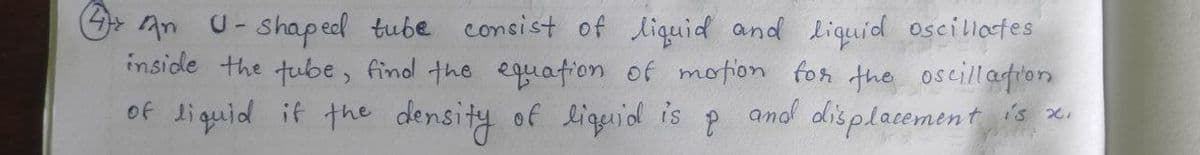 (4)→ An U-shaped tube consist of liquid and liquid oscillates
inside the tube, find the equation of motion for the oscillation
of liquid if the density of liquid is ρ and displacement is x.